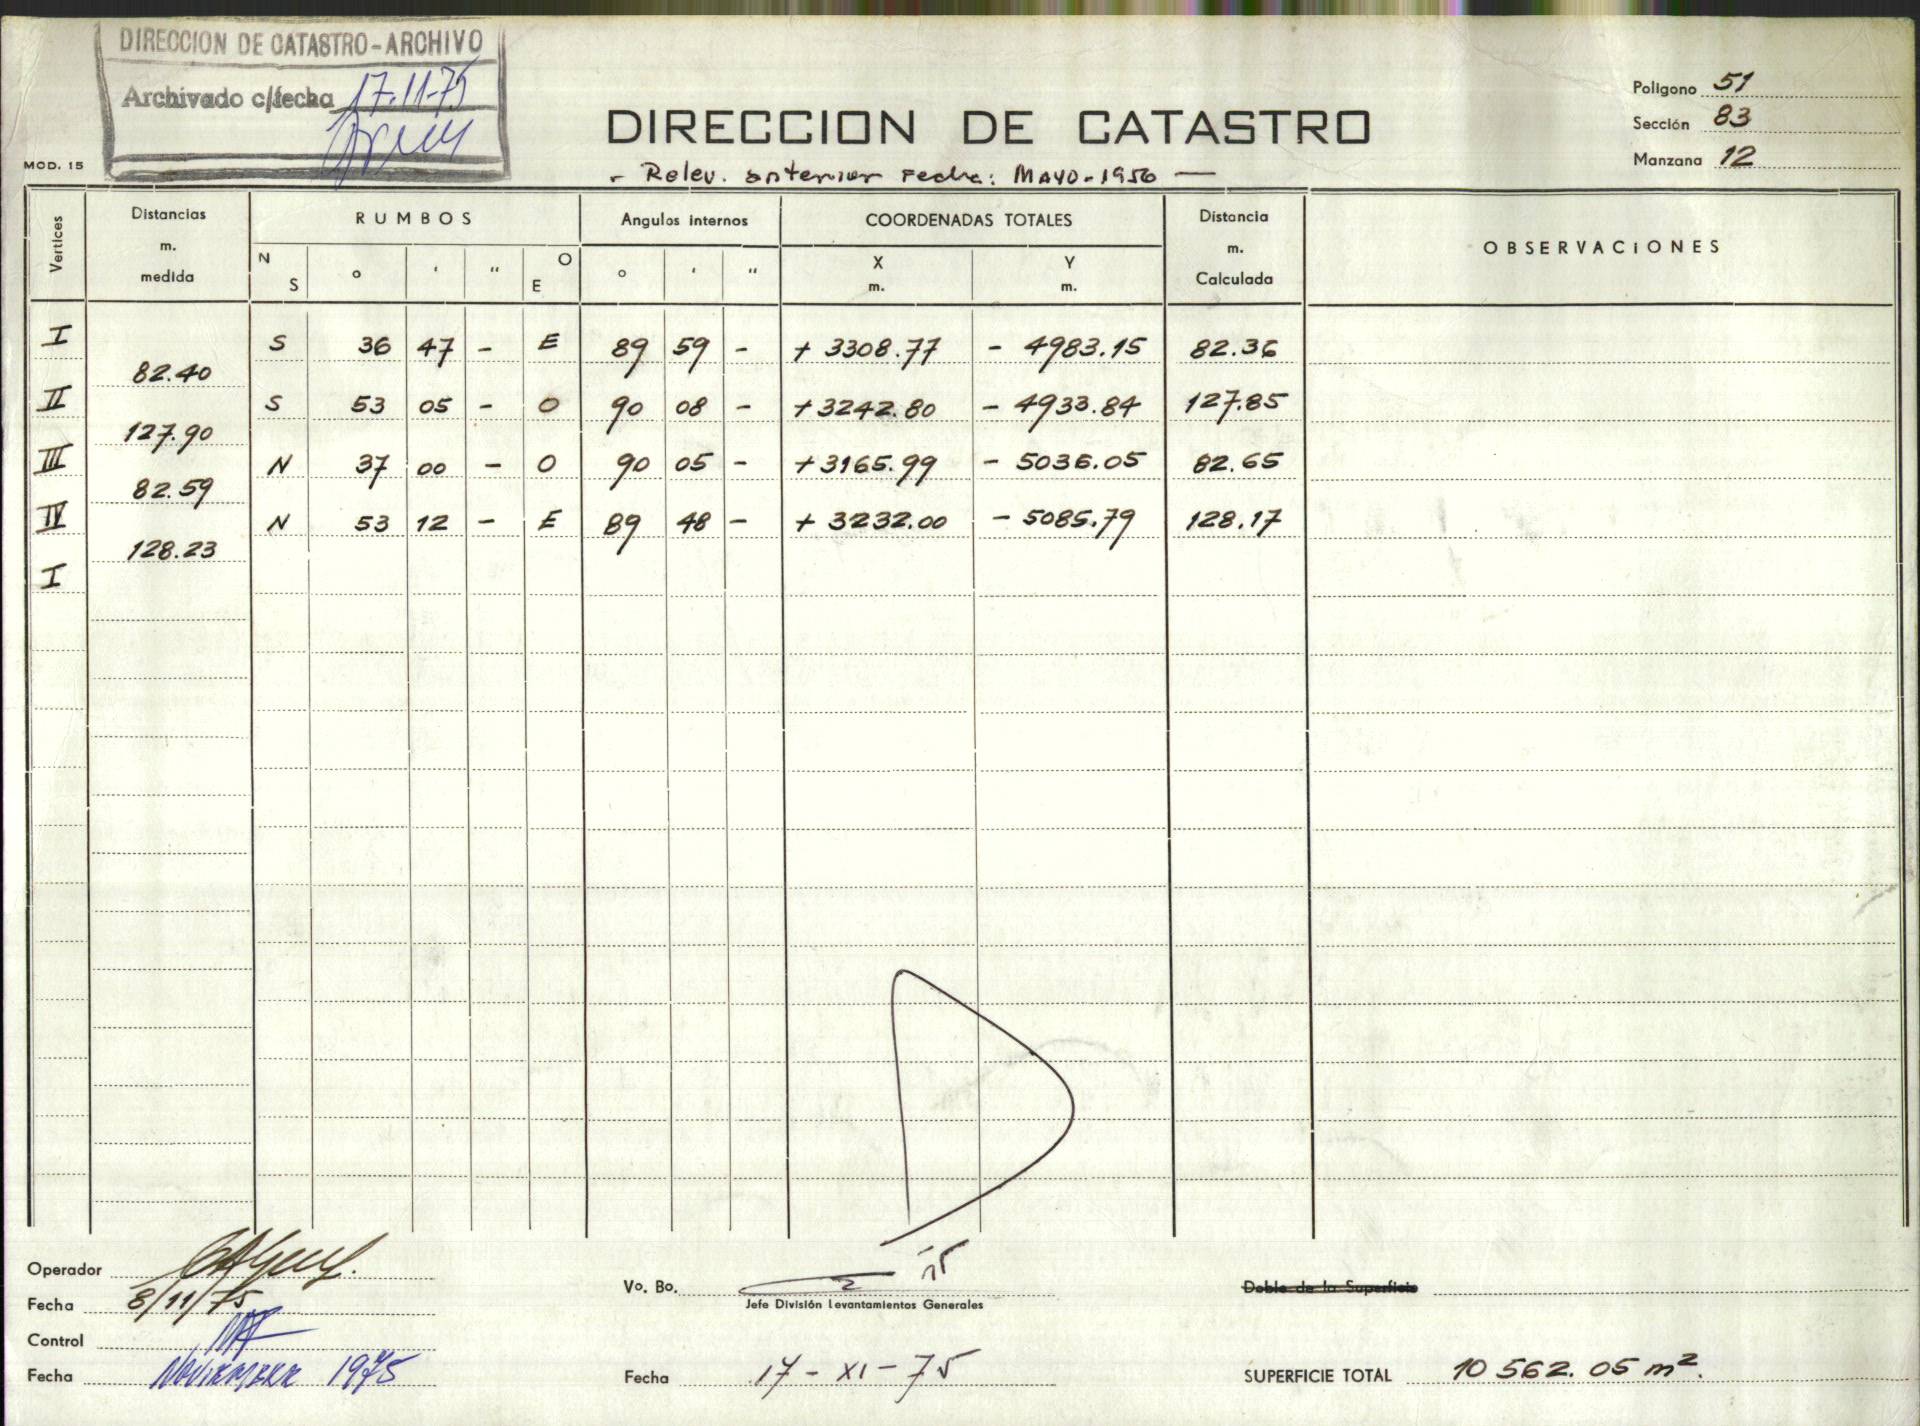 DIRECCION DE CATASTRO-ARCHIVO
Archivado c/fecha 17-11-75
MOD. 15
DIRECCION DE CATASTRO
- Relev. anterior Fecha: MAYO-1956 -
Poligono 51
Sección 83
Manzana 12
Vertices Distancias m. medida RUMBOS N S ° ' " O E Angulos internos ° ' " COORDENADAS TOTALES X m. Y m. Distancia m. Calculada OBSERVACIONES
I S 36 47 - E 89 59 - + 3308.77 - 4983.15 82.36
82.40
II S 53 05 - O 90 08 - + 3242.80 - 4933.84 127.85
127.90
III N 37 00 - O 90 05 - + 3165.99 - 5036.05 82.65
82.59
IV N 53 12 - E 89 48 - + 3232.00 - 5085.79 128.17
128.23
I
Operador
Fecha 8/11/75
Control
Fecha NOVIEMBRE 1975
Vo. Bo.
Jefe División Levantamientos Generales
Fecha 17-XI-75
Doble de la Superficie
SUPERFICIE TOTAL 10 562.05 m².